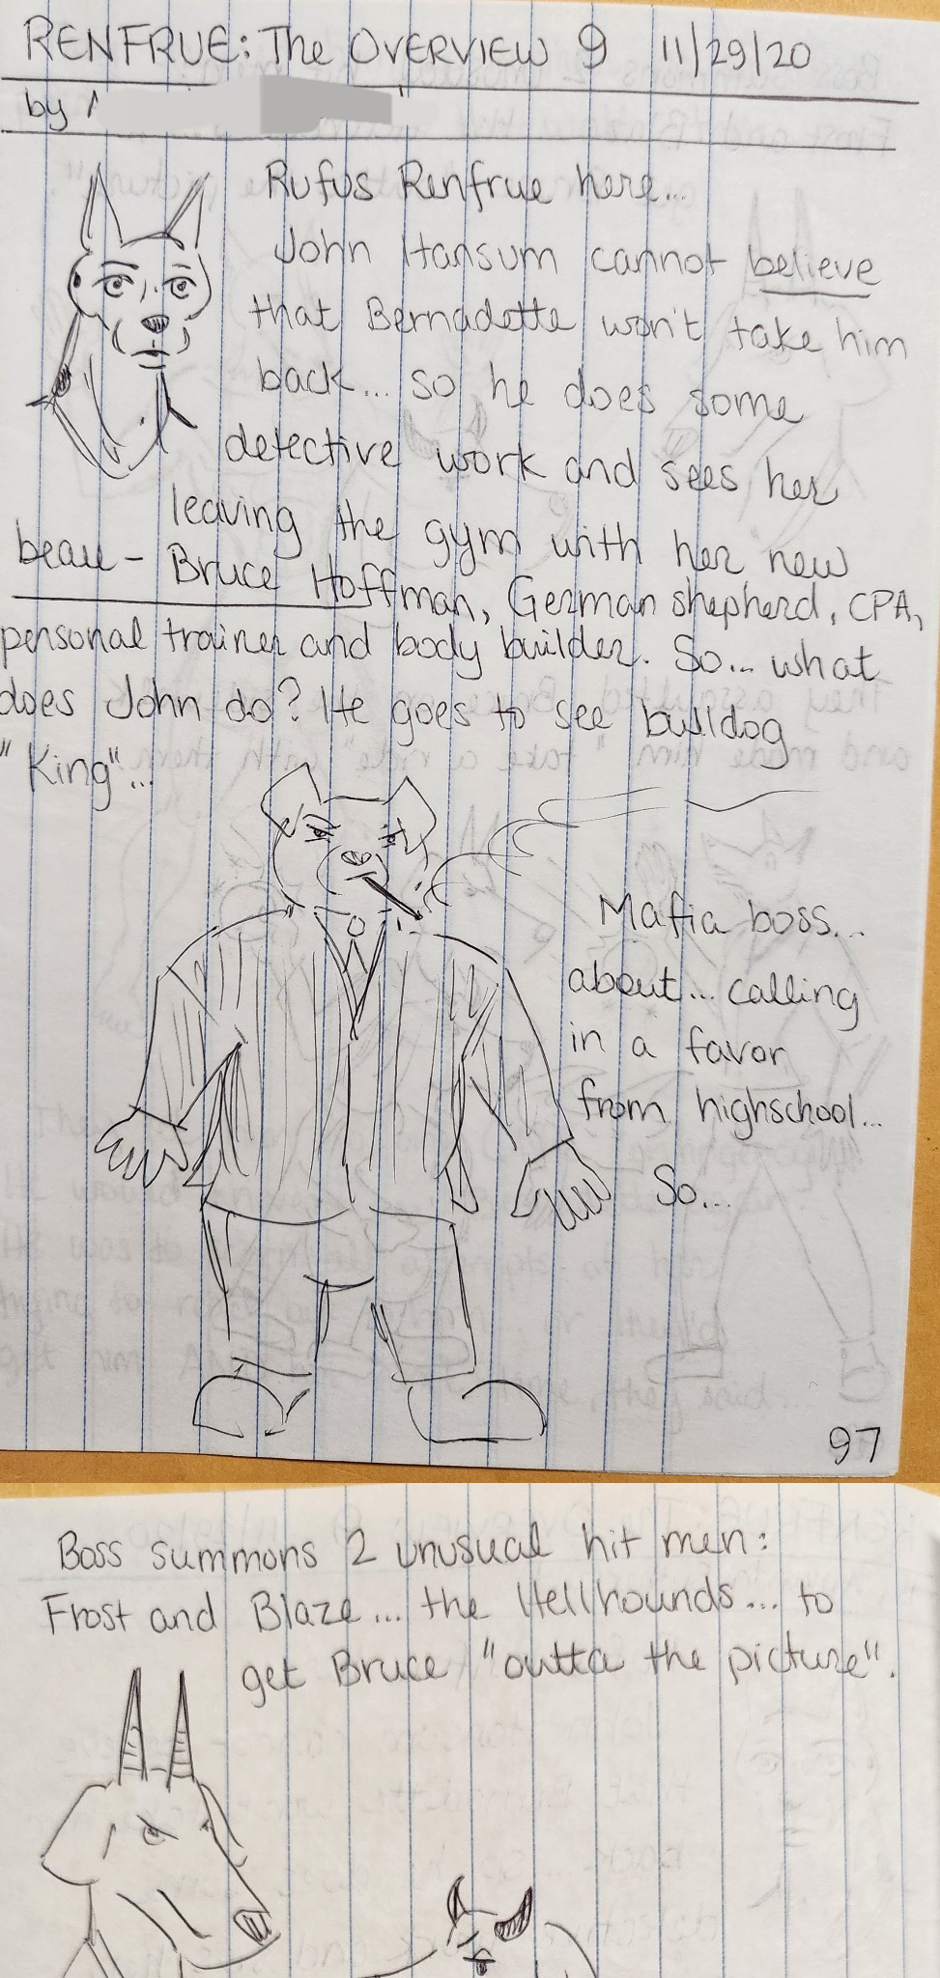 RENFRUE: The OVERVIEW 9 11/29/20
by
Rufus Renfrue here...
John Hansum cannot believe
that Bernadette won't take him
back... so he does some
detective work and sees her
leaving the gym with her new
beau - Bruce Hoffman, German shepherd, CPA,
personal trainer and body builder. So... what
does John do? He goes to see bulldog
"King"...
Mafia boss...
about... calling
in a favor
from highschool...
So...
97
Boss summons 2 unusual hit men:
Frost and Blaze... the Hellhounds... to
get Bruce "outta the picture".